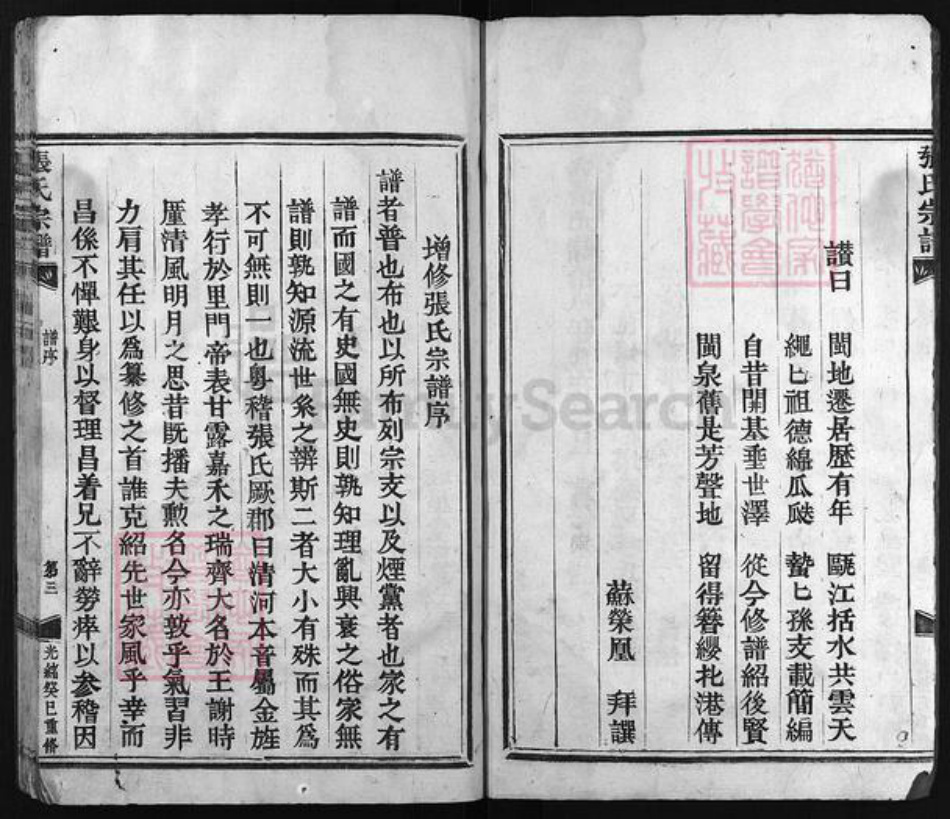 張氏宗譜
讃曰 閩地遷居歷有年 甌江括水共雲天
繩匕祖德綿瓜瓞 蟄匕孫支載簡編
自昔開基垂世澤 從今修譜紹後賢
閩泉舊是芳聲地 留得簪纓玌港傳
蘇榮凰 拜譔
增修張氏宗譜序
譜者普也布也以所布列宗支以及煙黨者也家之有
譜而國之有史國無史則孰知理亂興衰之俗家無
譜則孰知源流世系之辨斯二者大小有殊而其爲
不可無則一也粤稽張氏厥郡曰清河本音屬金旌
孝行於里門帝表甘露嘉禾之瑞齊大名於王謝時
厪清風明月之思昔既播夫勲名今亦敦乎氣習非
力肩其任以爲纂修之首誰克紹先世家風乎幸而
昌係不憚艱身以督理昌着兄不辭勞瘁以參稽因
張氏宗譜
譜序
第三
光緒癸巳重修
FamilySearch